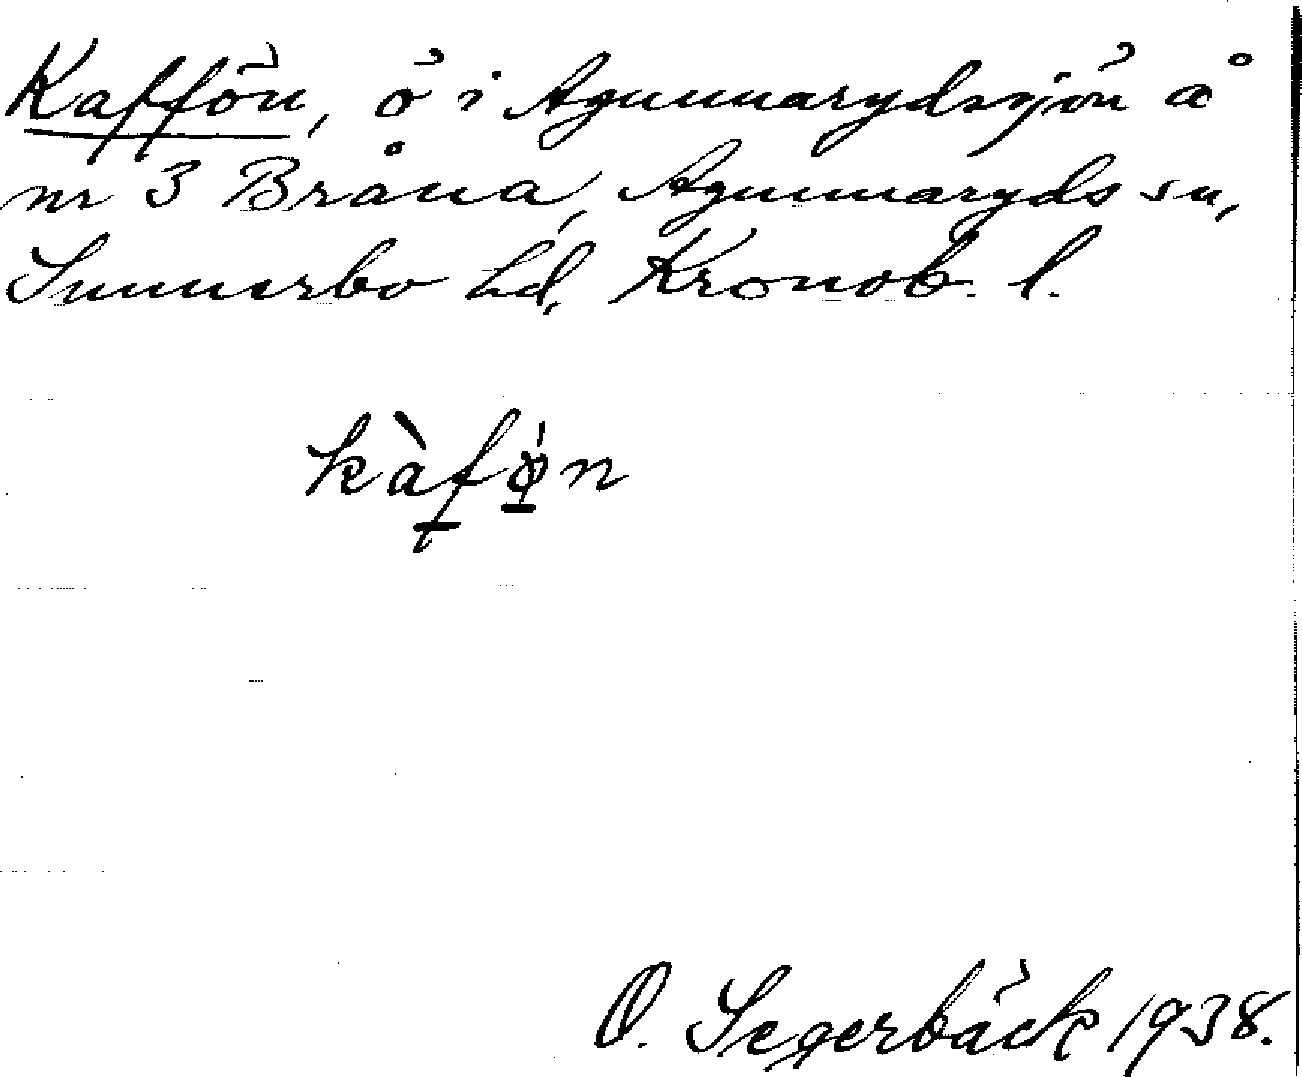 Kaffön, ö i Agunnarydsjön å
nr 3 Bråna, Agunnaryds sn,
Sunnerbo hd, Kronob. l.
kàfǿ̲n
O. Segerbäck 1938.